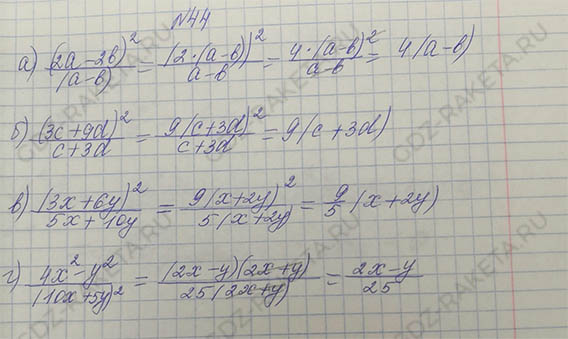 №44
а) (2a-2b)²/(a-b) = (2·(a-b))²/a-b = 4·(a-b)²/a-b = 4(a-b)
б) (3c+9d)²/c+3d = 9(c+3d)²/c+3d = 9(c+3d)
в) (3x+6y)²/5x+10y = 9(x+2y)²/5(x+2y) = 9/5 (x+2y)
г) 4x²-y²/(10x+5y)² = (2x-y)(2x+y)/25(2x+y) = 2x-y/25
GDZ-RAKETA.RU